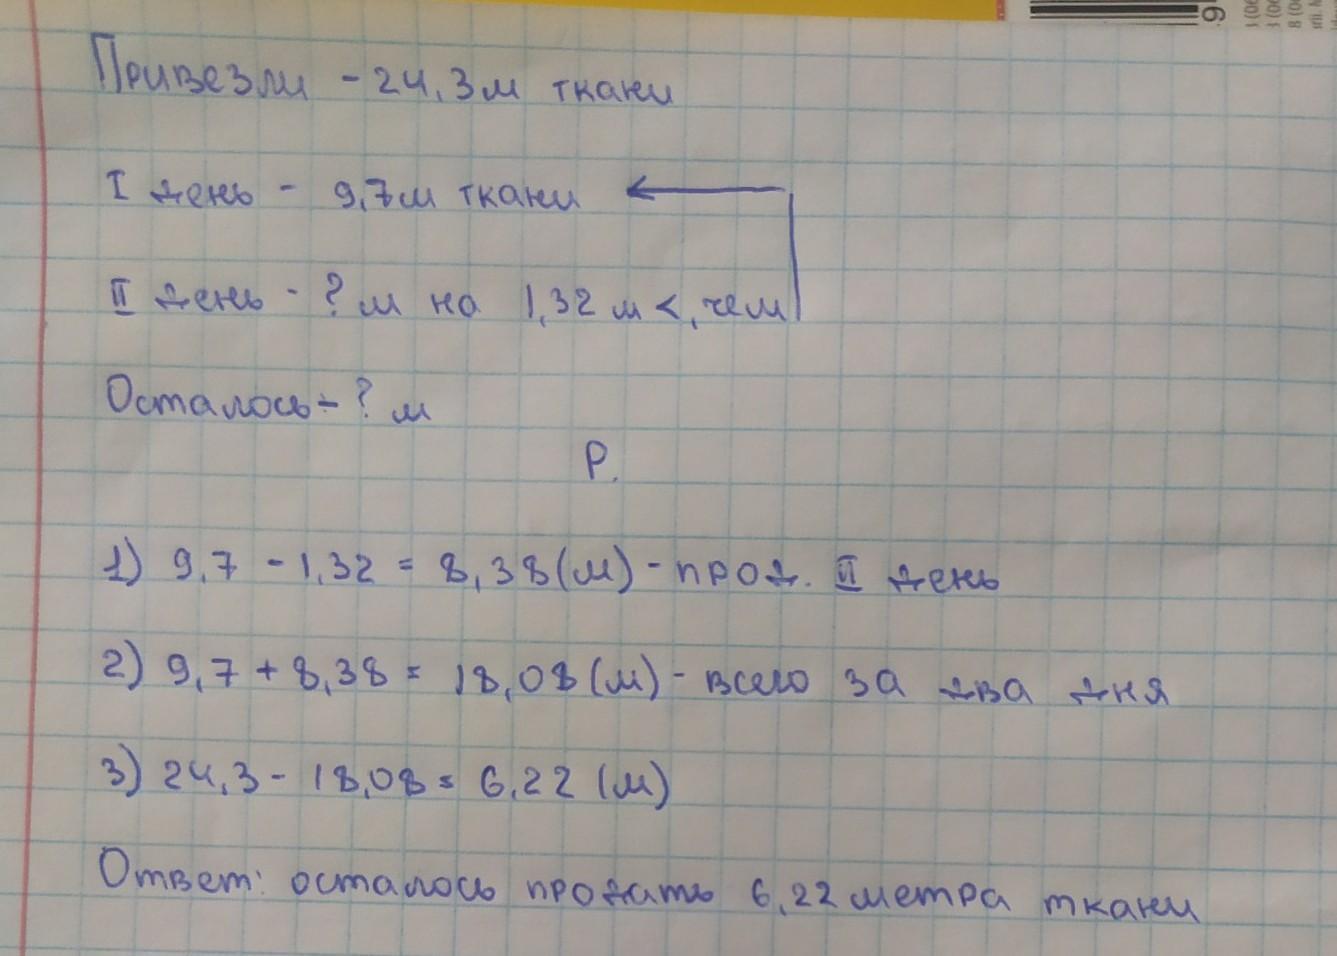 Привезли - 24,3м ткани
I день - 9,7м ткани
II день - ? м на 1,32 м <, чем
Осталось - ? м
Р.
1) 9,7 - 1,32 = 8,38(м) - прод. II день
2) 9,7 + 8,38 = 18,08(м) - всего за два дня
3) 24,3 - 18,08 = 6,22 (м)
Ответ: осталось продать 6,22 метра ткани